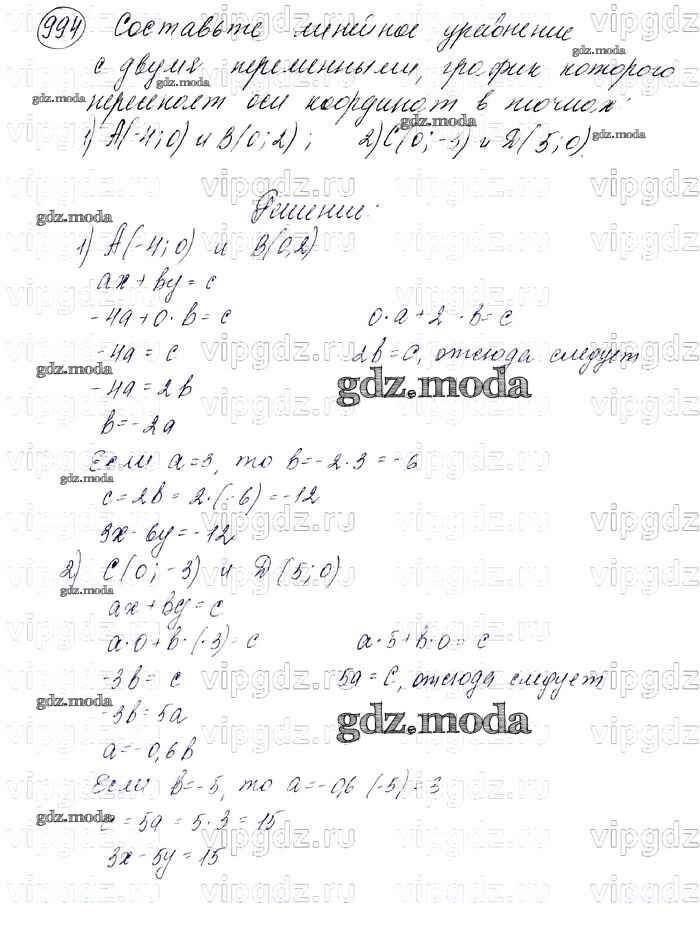 994 Составьте линейное уравнение
с двумя переменными, график которого
пересекает оси координат в точках:
1) А(-4; 0) и В(0; 2); 2) С(0; -3) и D(5; 0).
Решение:
1) А(-4; 0) и В(0, 2)
ax + by = c
-4a + 0·b = c 0·a + 2·b = c
-4a = c 2b = c, отсюда следует
-4a = 2b
b = -2a
Если a = 3, то b = -2·3 = -6
c = 2b = 2·(-6) = -12
3x - 6y = -12
2) С(0; -3) и D(5; 0)
ax + by = c
a·0 + b·(-3) = c a·5 + b·0 = c
-3b = c 5a = c, отсюда следует
-3b = 5a
a = -0,6b
Если b = -5, то a = -0,6·(-5) = 3
c = 5a = 5·3 = 15
3x - 5y = 15
gdz.moda
vipgdz.ru